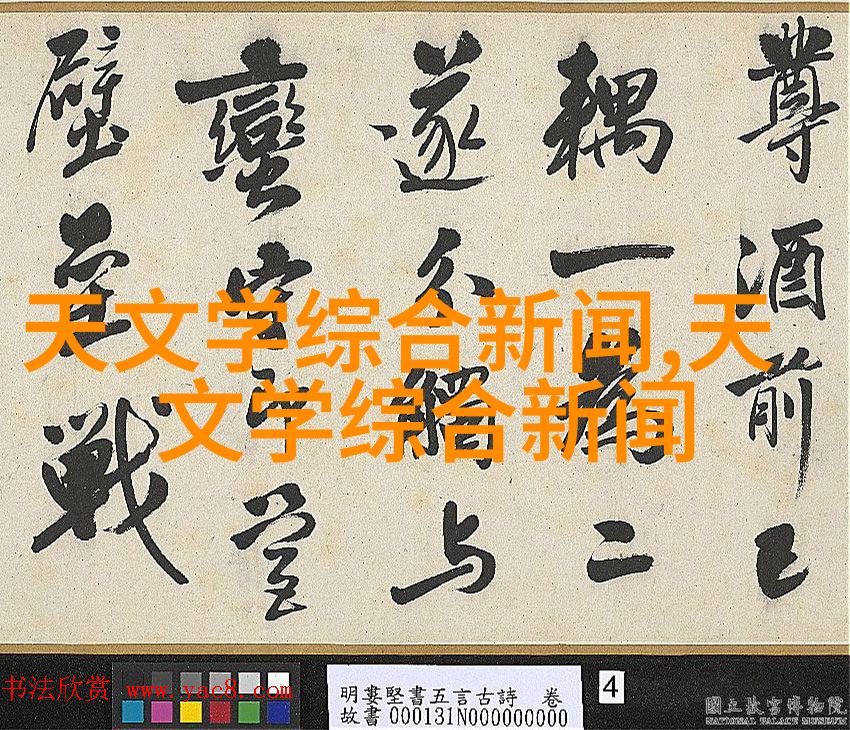 尊酒前已
耦一為二
遂不觸与
蠻宮即營
壁壘戰
天文学综合新闻,天
文学综合新闻
书法欣赏 www.yac8.com
明婁堅書五言古詩　卷
故書000131N000000000
4
國立故宮博物院
NATIONAL PALACE MUSEUM